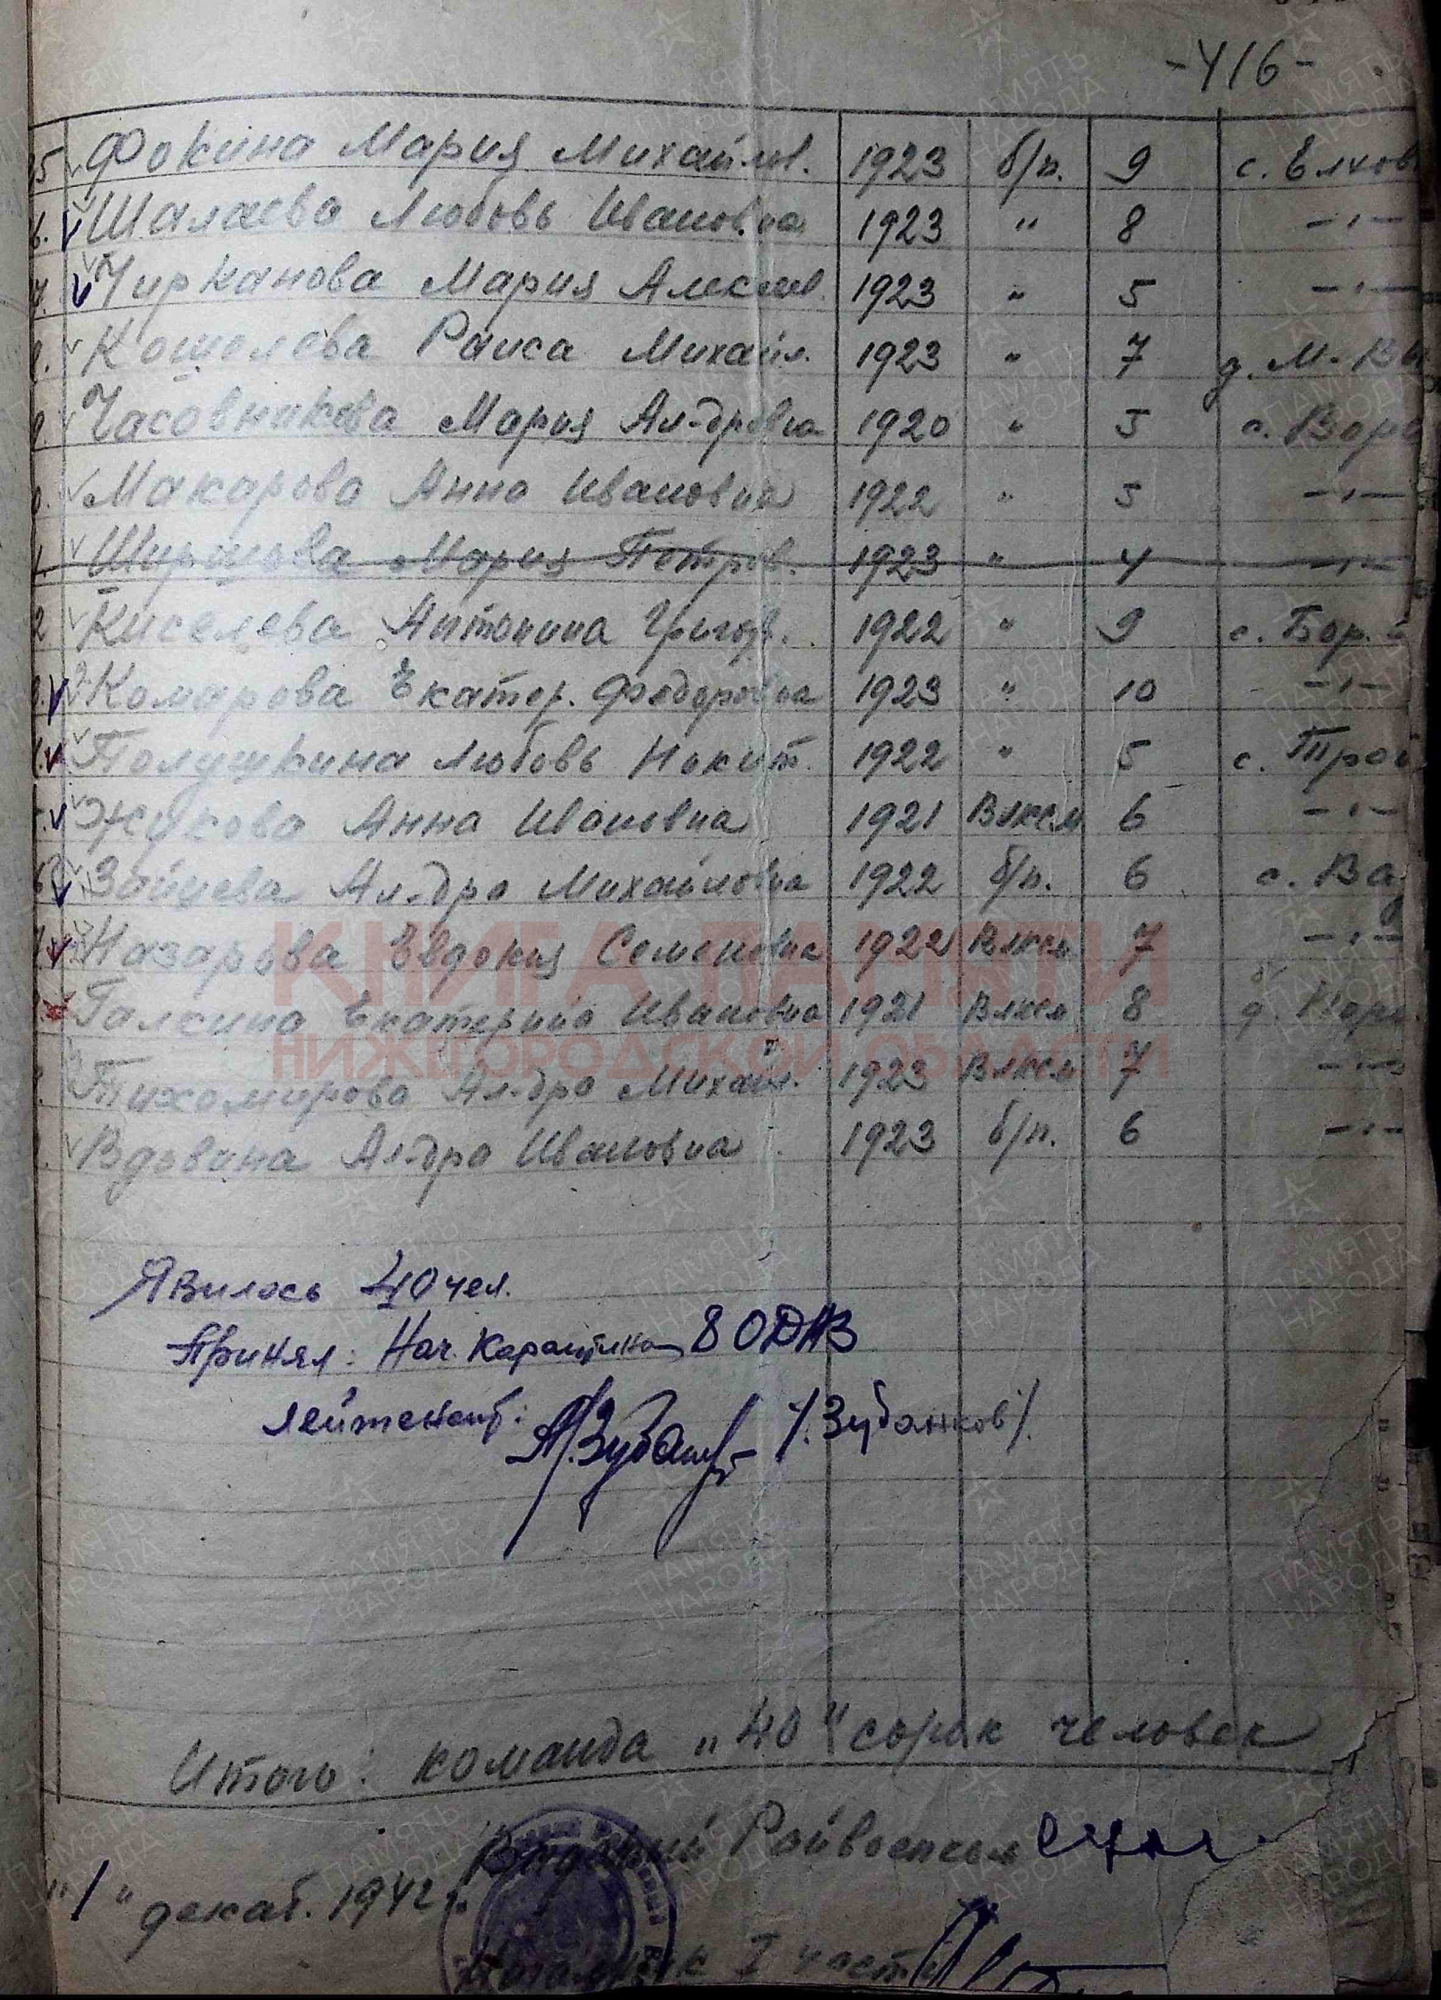 -416-
Фокина Мария Михайлов. 1923 б/п. 9 с. Елхов
6. Шалаева Любовь Ивановна 1923 " 8 -"-
7. Чирканова Мария Алексеев. 1923 " 5 -"-
Кошелева Раиса Михайл. 1923 " 7 д. М-
9. Часовникова Мария Ал-дровна 1920 " 5 с. Воро
Макарова Анна Ивановна 1922 " 5 -"-
Мария Петров. 1923 " 4 -"-
2 Киселева Антонина Григор. 1922 " 9 с. Бор.
Комарова Екатер. Федоровна 1923 " 10 -"-
Полушкина Любовь Никит. 1922 " 5 с. Трои
Жукова Анна Ивановна 1921 Влксм 6 -"-
6 Зайцева Ал-дра Михайловна 1922 б/п. 6 с. Ва
Назарова Евдокия Семеновна 1922 Влксм 7 -"-
Галсина Екатерина Ивановна 1921 Влксм 8 д.
Тихомирова Ал-дра Михайл. 1923 Влксм 7 -"-
Вдовина Ал-дра Ивановна 1923 б/п. 6 -"-
КНИГА ПАМЯТИ
НИЖЕГОРОДСКОЙ ОБЛАСТИ
Явилось 40 чел.
Принял: Нач. Карантина 8 ОДАЗ
лейтенант: /Зубанков/.
Итого: команда „40" сорок человек
Райвоенком
"1" декаб. 1942 г.
Начальник I части